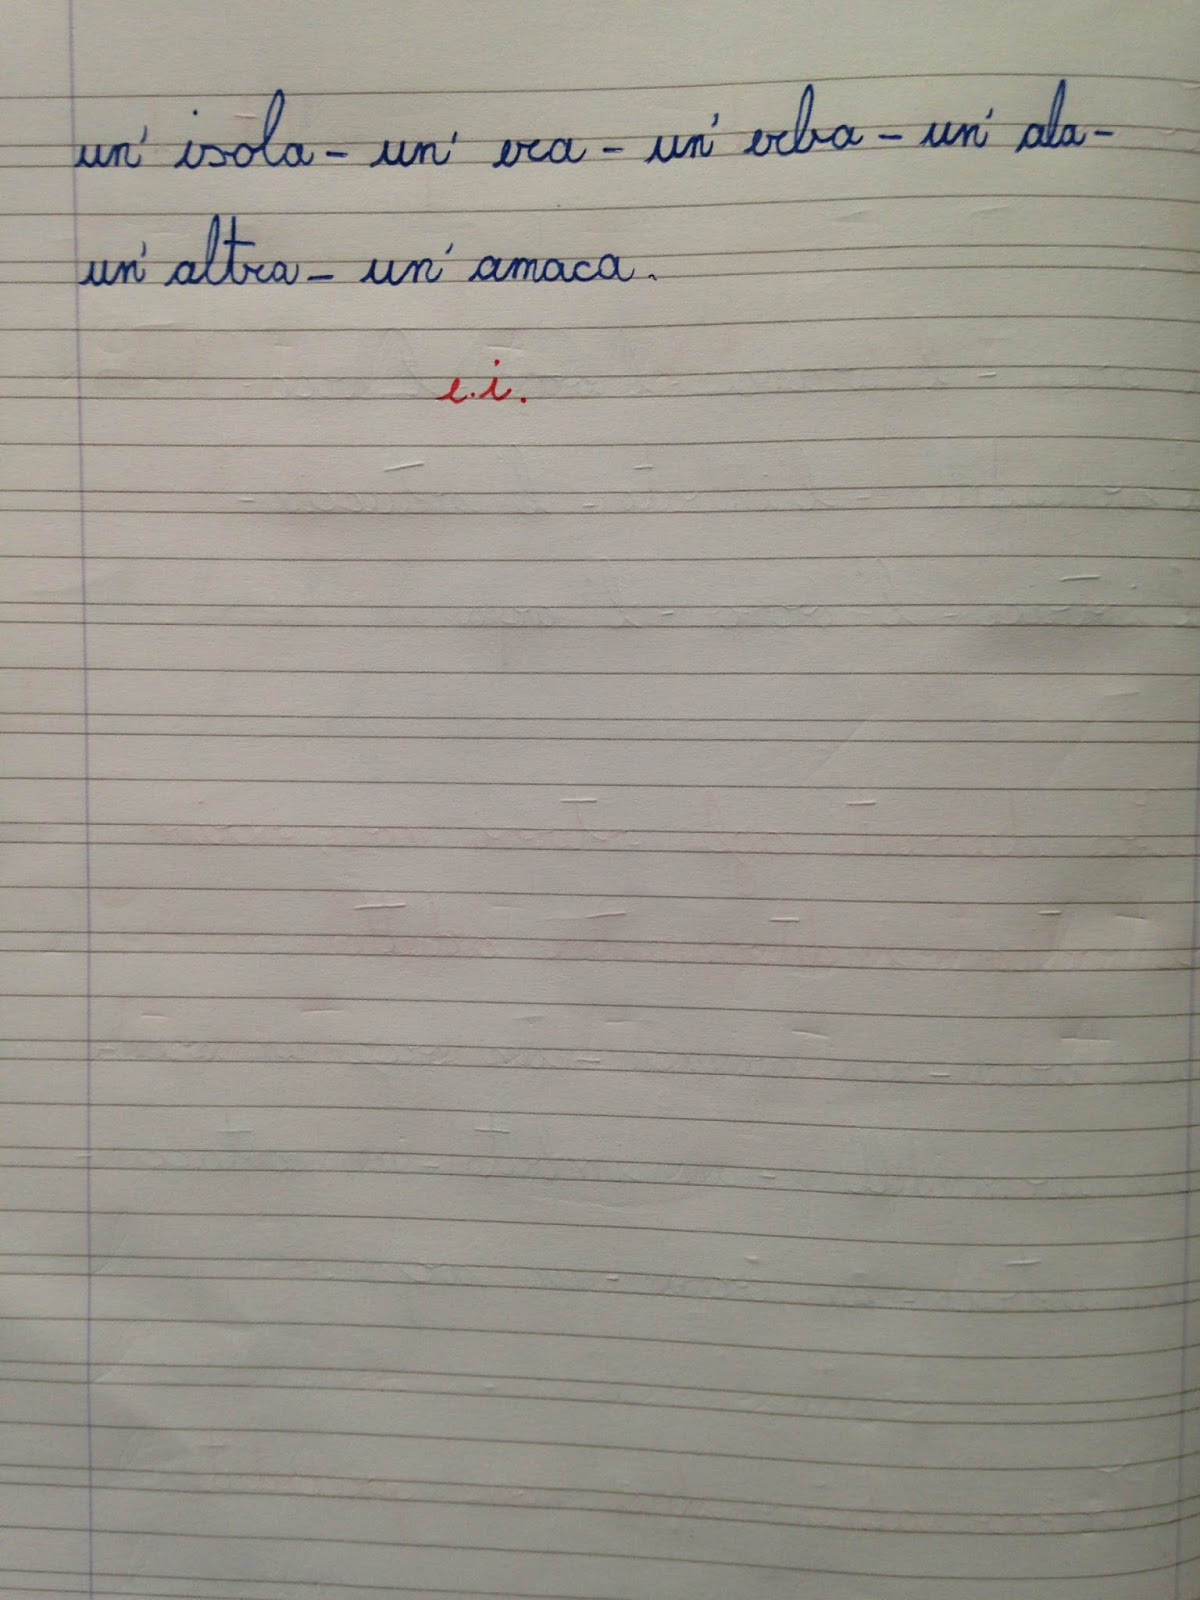 un' isola - un' era - un' erba - un' ala -
un' altra - un' amaca.
e.i.